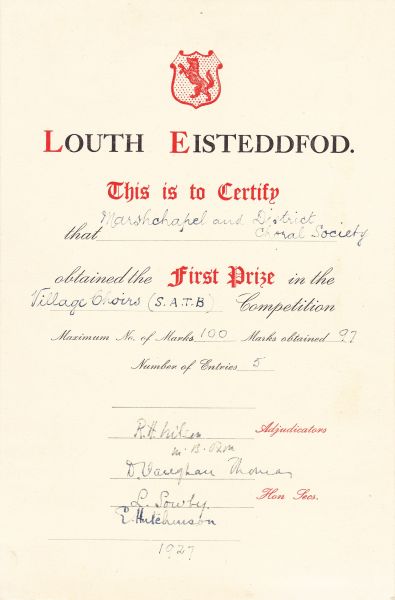 LOUTH EISTEDDFOD.
This is to Certify
that Marshchapel and District
Choral Society
obtained the First Prize in the
Village Choirs (S.A.T.B) Competition
Maximum No. of Marks 100 Marks obtained 97
Number of Entries 5
R.H. Wilson Adjudicators
D. Vaughan Thomas
L. Sowby Hon Secs.
E. Hutchinson
1927